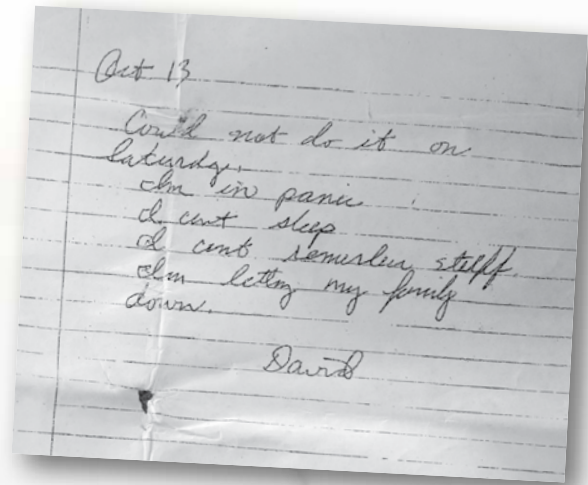 Oct 13
Could not do it on
Saturday.
Im in panic
I cant sleep
I cant remember stuff.
Im letting my family
down.
David